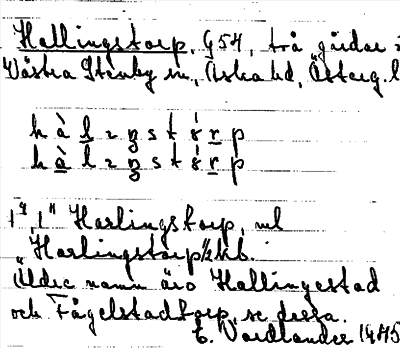 Hallingstorp, G54, två gårdar i
Västra Stenby sn, Aska hd, Österg. l
h à l ı ŋ s t ó r p
h à l ı ŋ s t ó r p
Harlingstorp, ml
"Harlingstorp 1/2 kb.
Äldre namn äro Hallingestad
och Fågelstadtorp, se dessa.
C. Nordlander